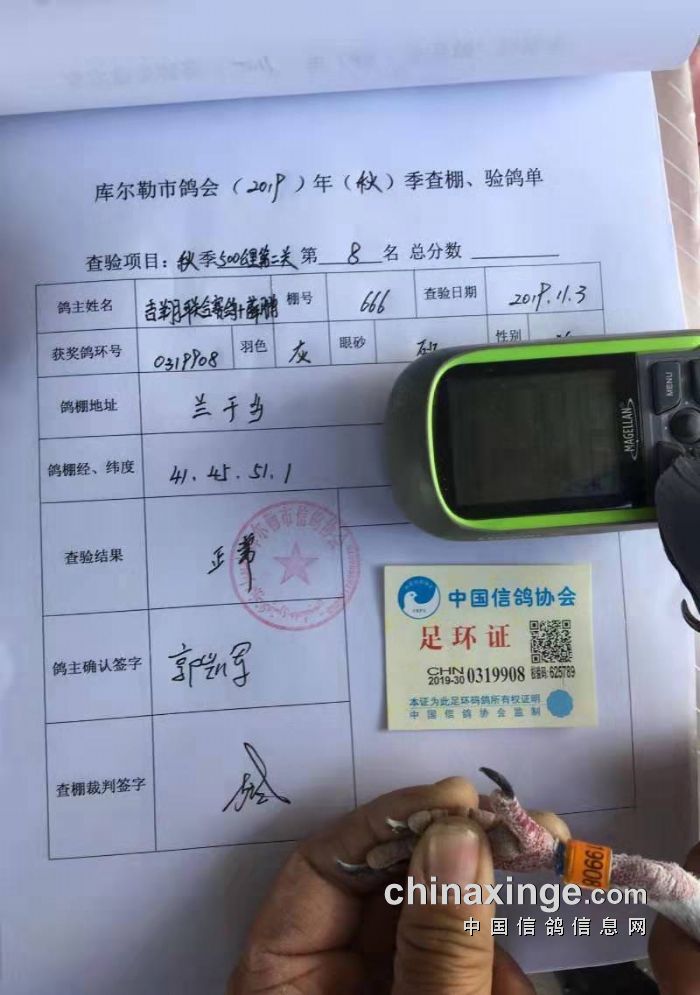 库尔勒市鸽会（2019）年（秋）季查棚、验鸽单
查验项目：秋季500公里第二关 第 8 名 总分数
鸽主姓名 棚号 666 查验日期 2019.11.3
获奖鸽环号 0319908 羽色 灰 眼砂 砂 性别
鸽棚地址 兰干乡
鸽棚经、纬度 41.45.51.1
查验结果 正常
鸽主确认签字
查棚裁判签字
MAGELLAN
MENU
中国信鸽协会
足环证
CHN
2019-30 0319908
校验码: 625789
本证为此足环码鸽所有权证明
中国信鸽协会监制
19908
chinaxinge.com
中国信鸽信息网